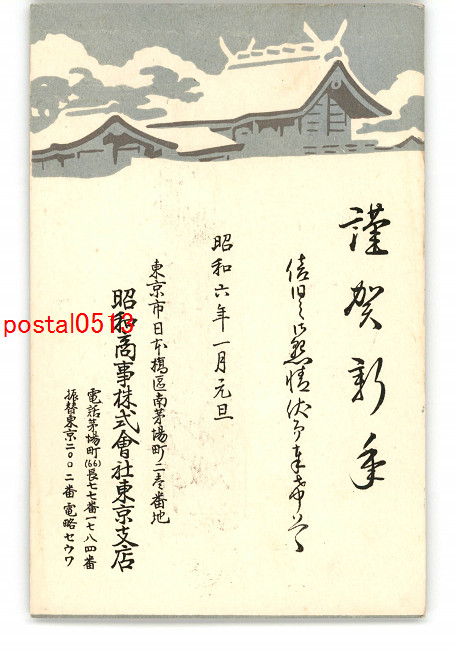 謹賀新年
倍旧之御懇情伏而奉希上候
昭和六年一月元旦
東京市日本橋區南茅場町二壱番地
昭和商事株式會社東京支店
電話茅場町(66)長七七番一七八四番
振替東京二〇〇二番 電略セウワ
postal0513